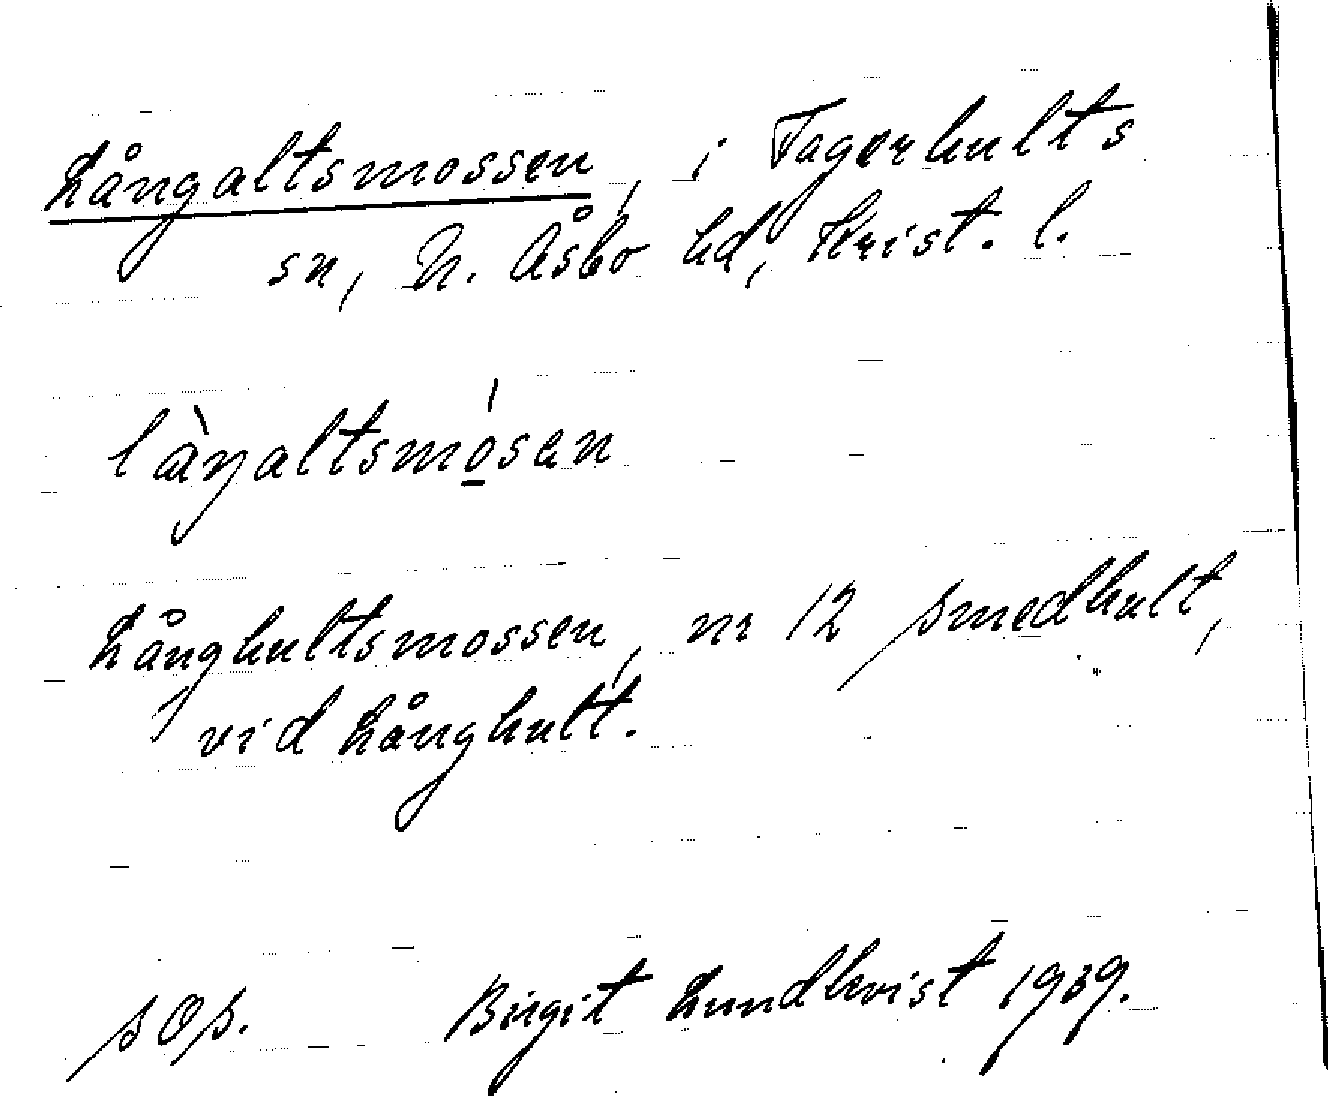 Långaltsmossen, i Fagerhults
sn, N. Åsbo hd, Krist. l.
làŋaltsmó̱sen
Långhultsmossen, nr 12 Smedhult,
vid Långhult.
sOs. Birgit Lundkvist 1939.